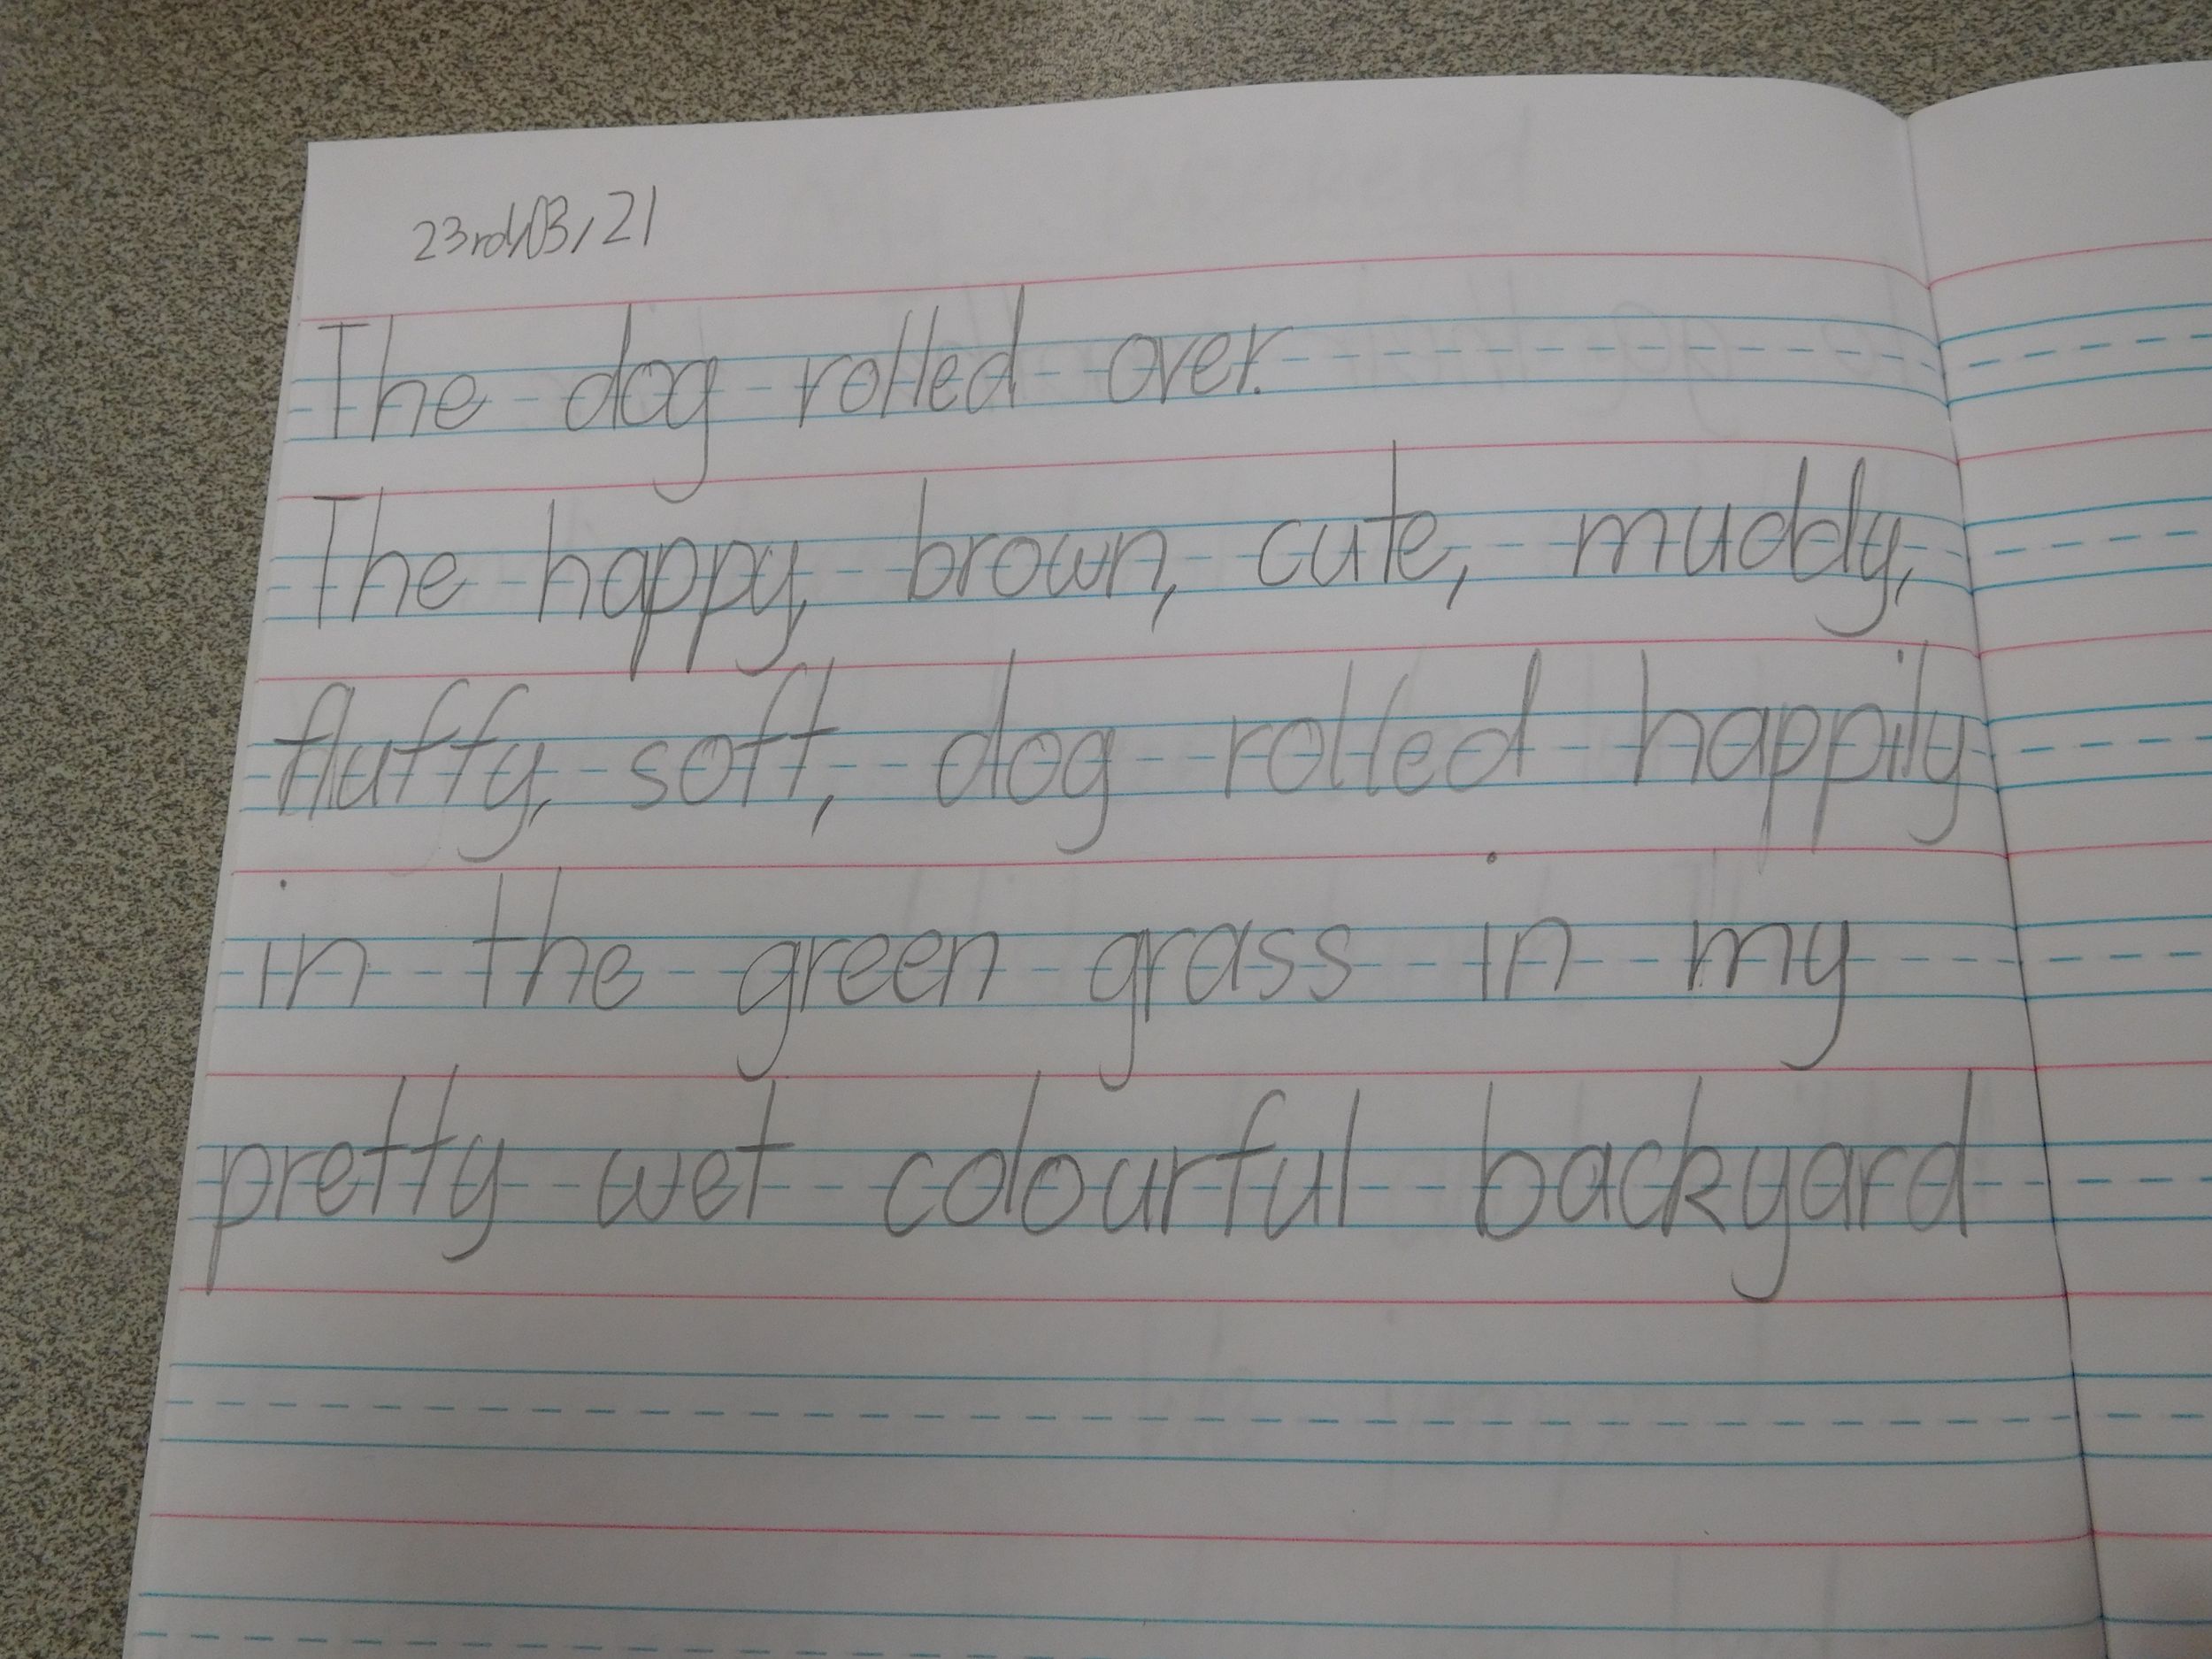 23rd/03/21
The dog rolled over.
The happy, brown, cute, muddy,
fluffy, soft, dog rolled happily
in the green grass in my
pretty wet colourful backyard